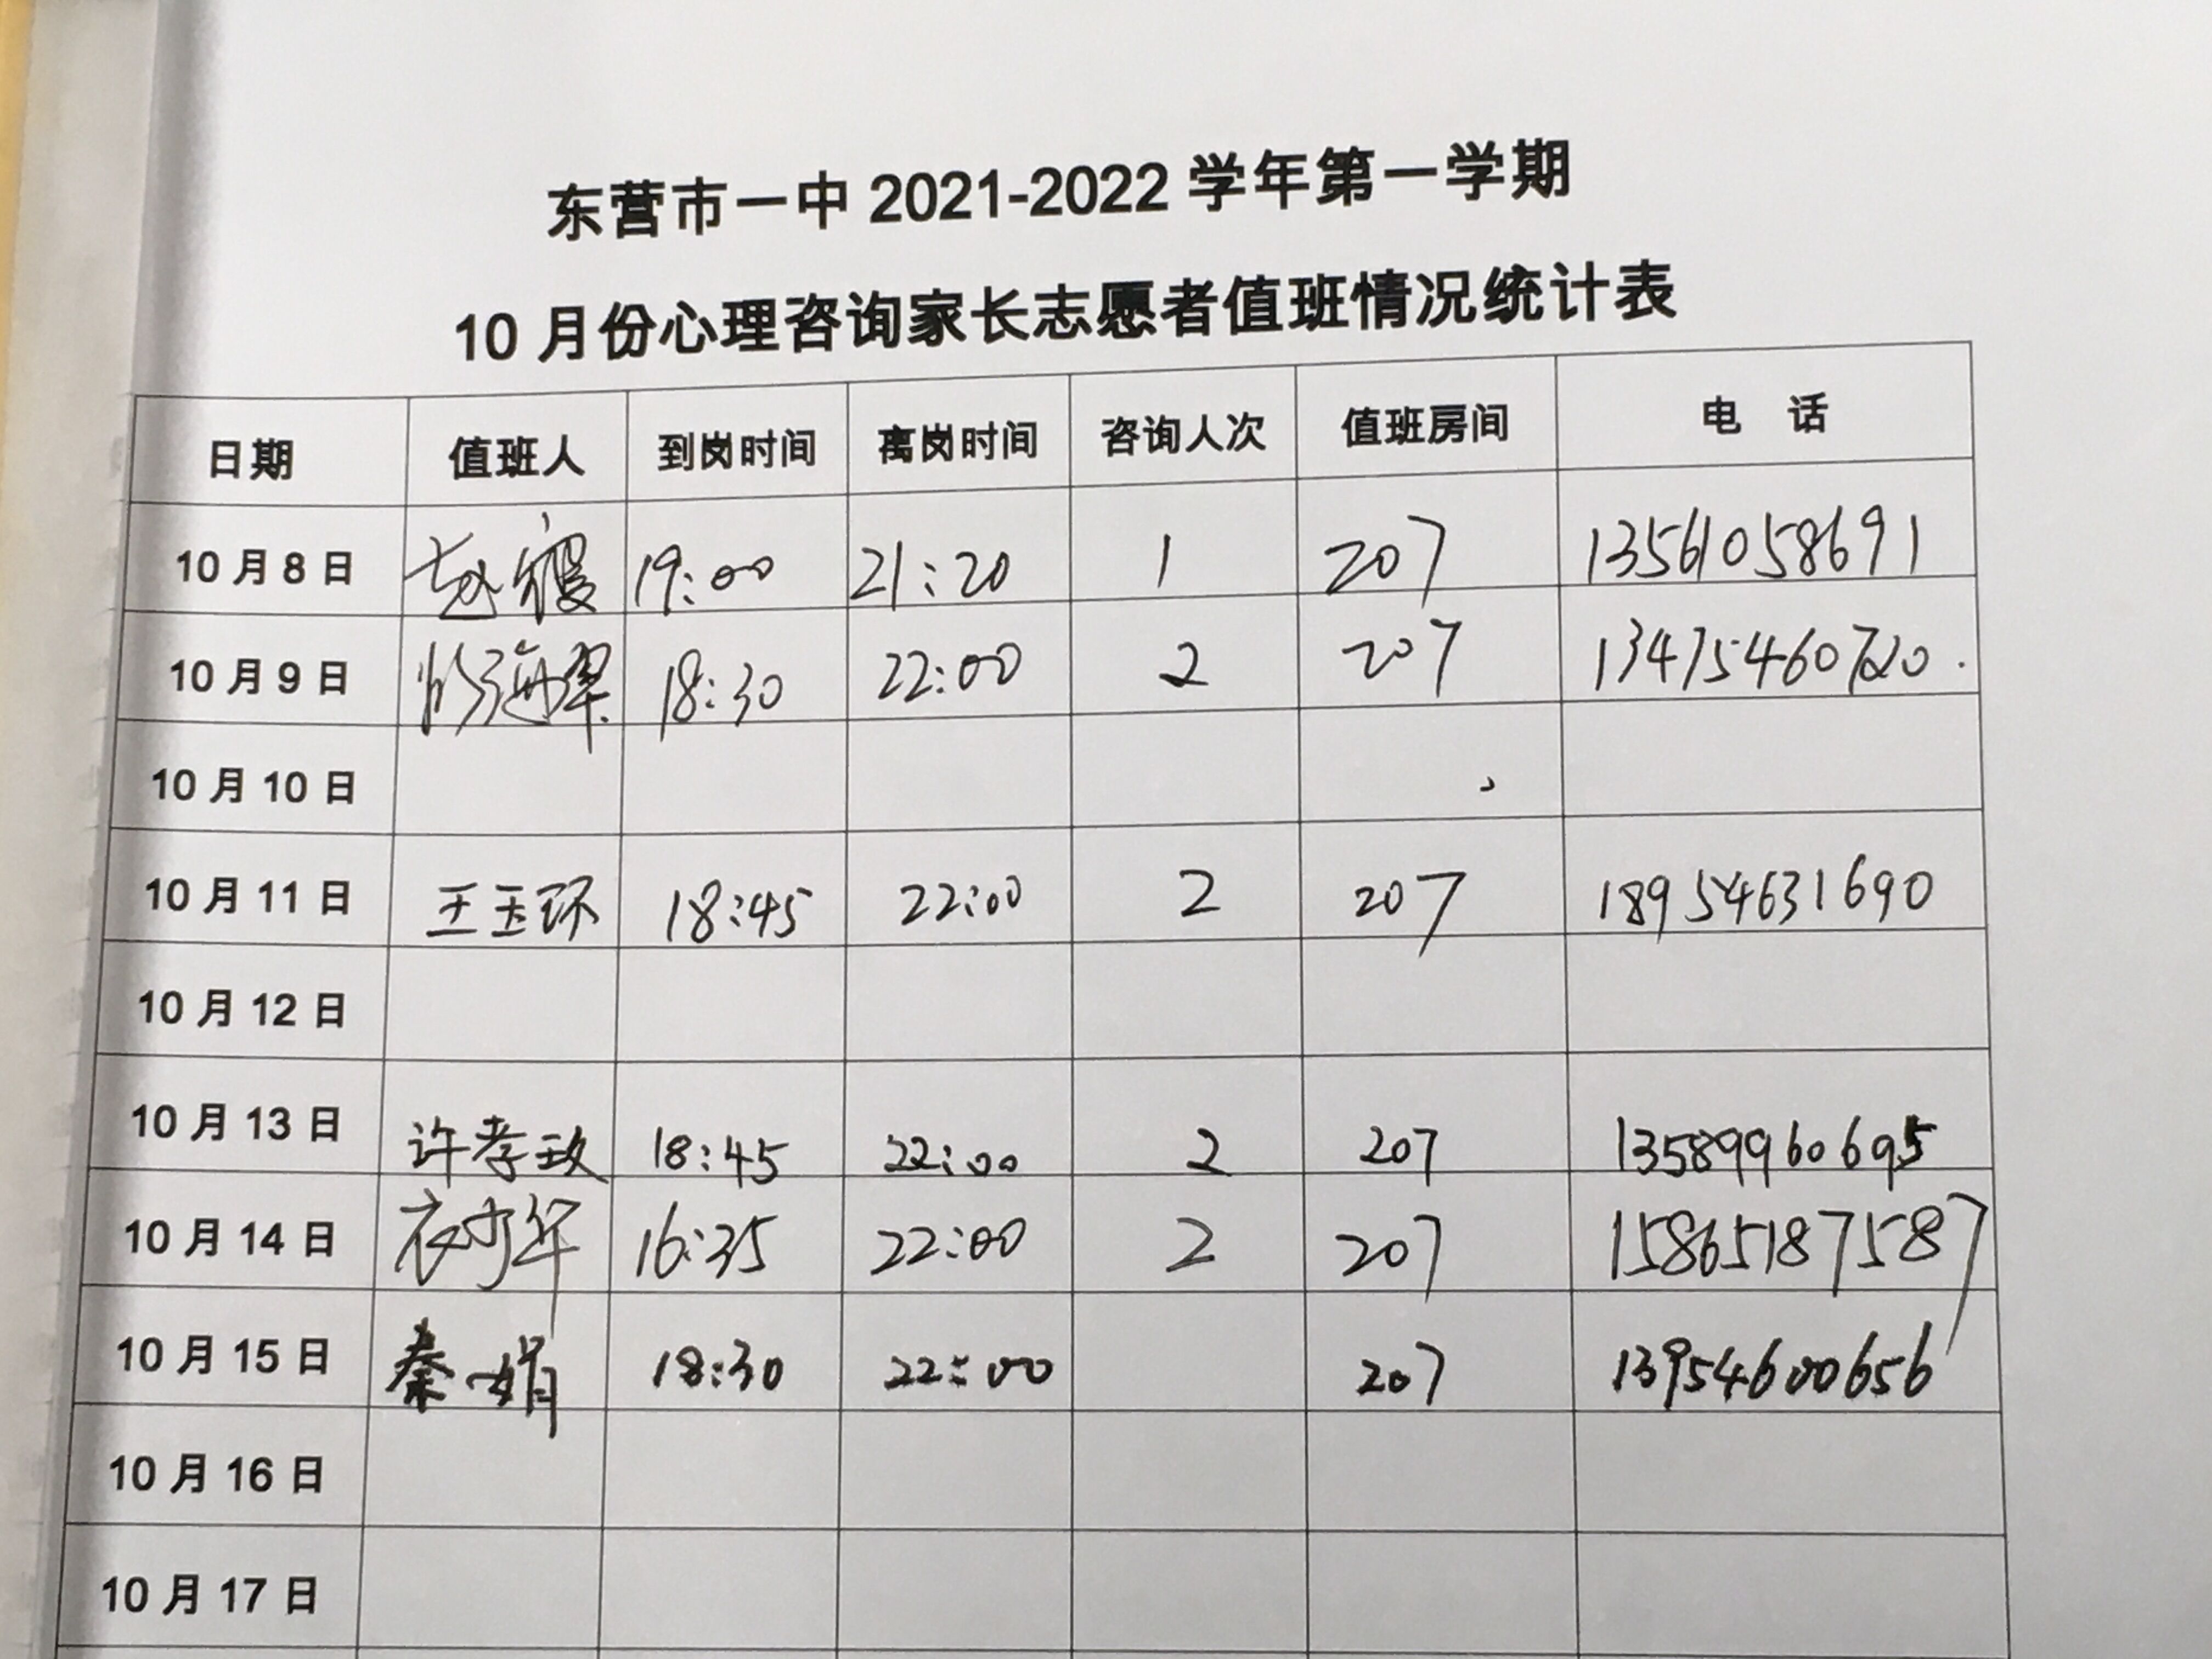 东营市一中 2021-2022 学年第一学期
10 月份心理咨询家长志愿者值班情况统计表
日期 值班人 到岗时间 离岗时间 咨询人次 值班房间 电 话
10 月 8 日 19:00 21:20 1 207 13561058691
10 月 9 日 18:30 22:00 2 207
10 月 10 日
10 月 11 日 王玉环 18:45 22:00 2 207 18954631690
10 月 12 日
10 月 13 日 许孝玫 18:45 22:00 2 207 13589960695
10 月 14 日 16:35 22:00 2 207 15865187587
10 月 15 日 秦娟 18:30 22:00 207 13954600656
10 月 16 日
10 月 17 日